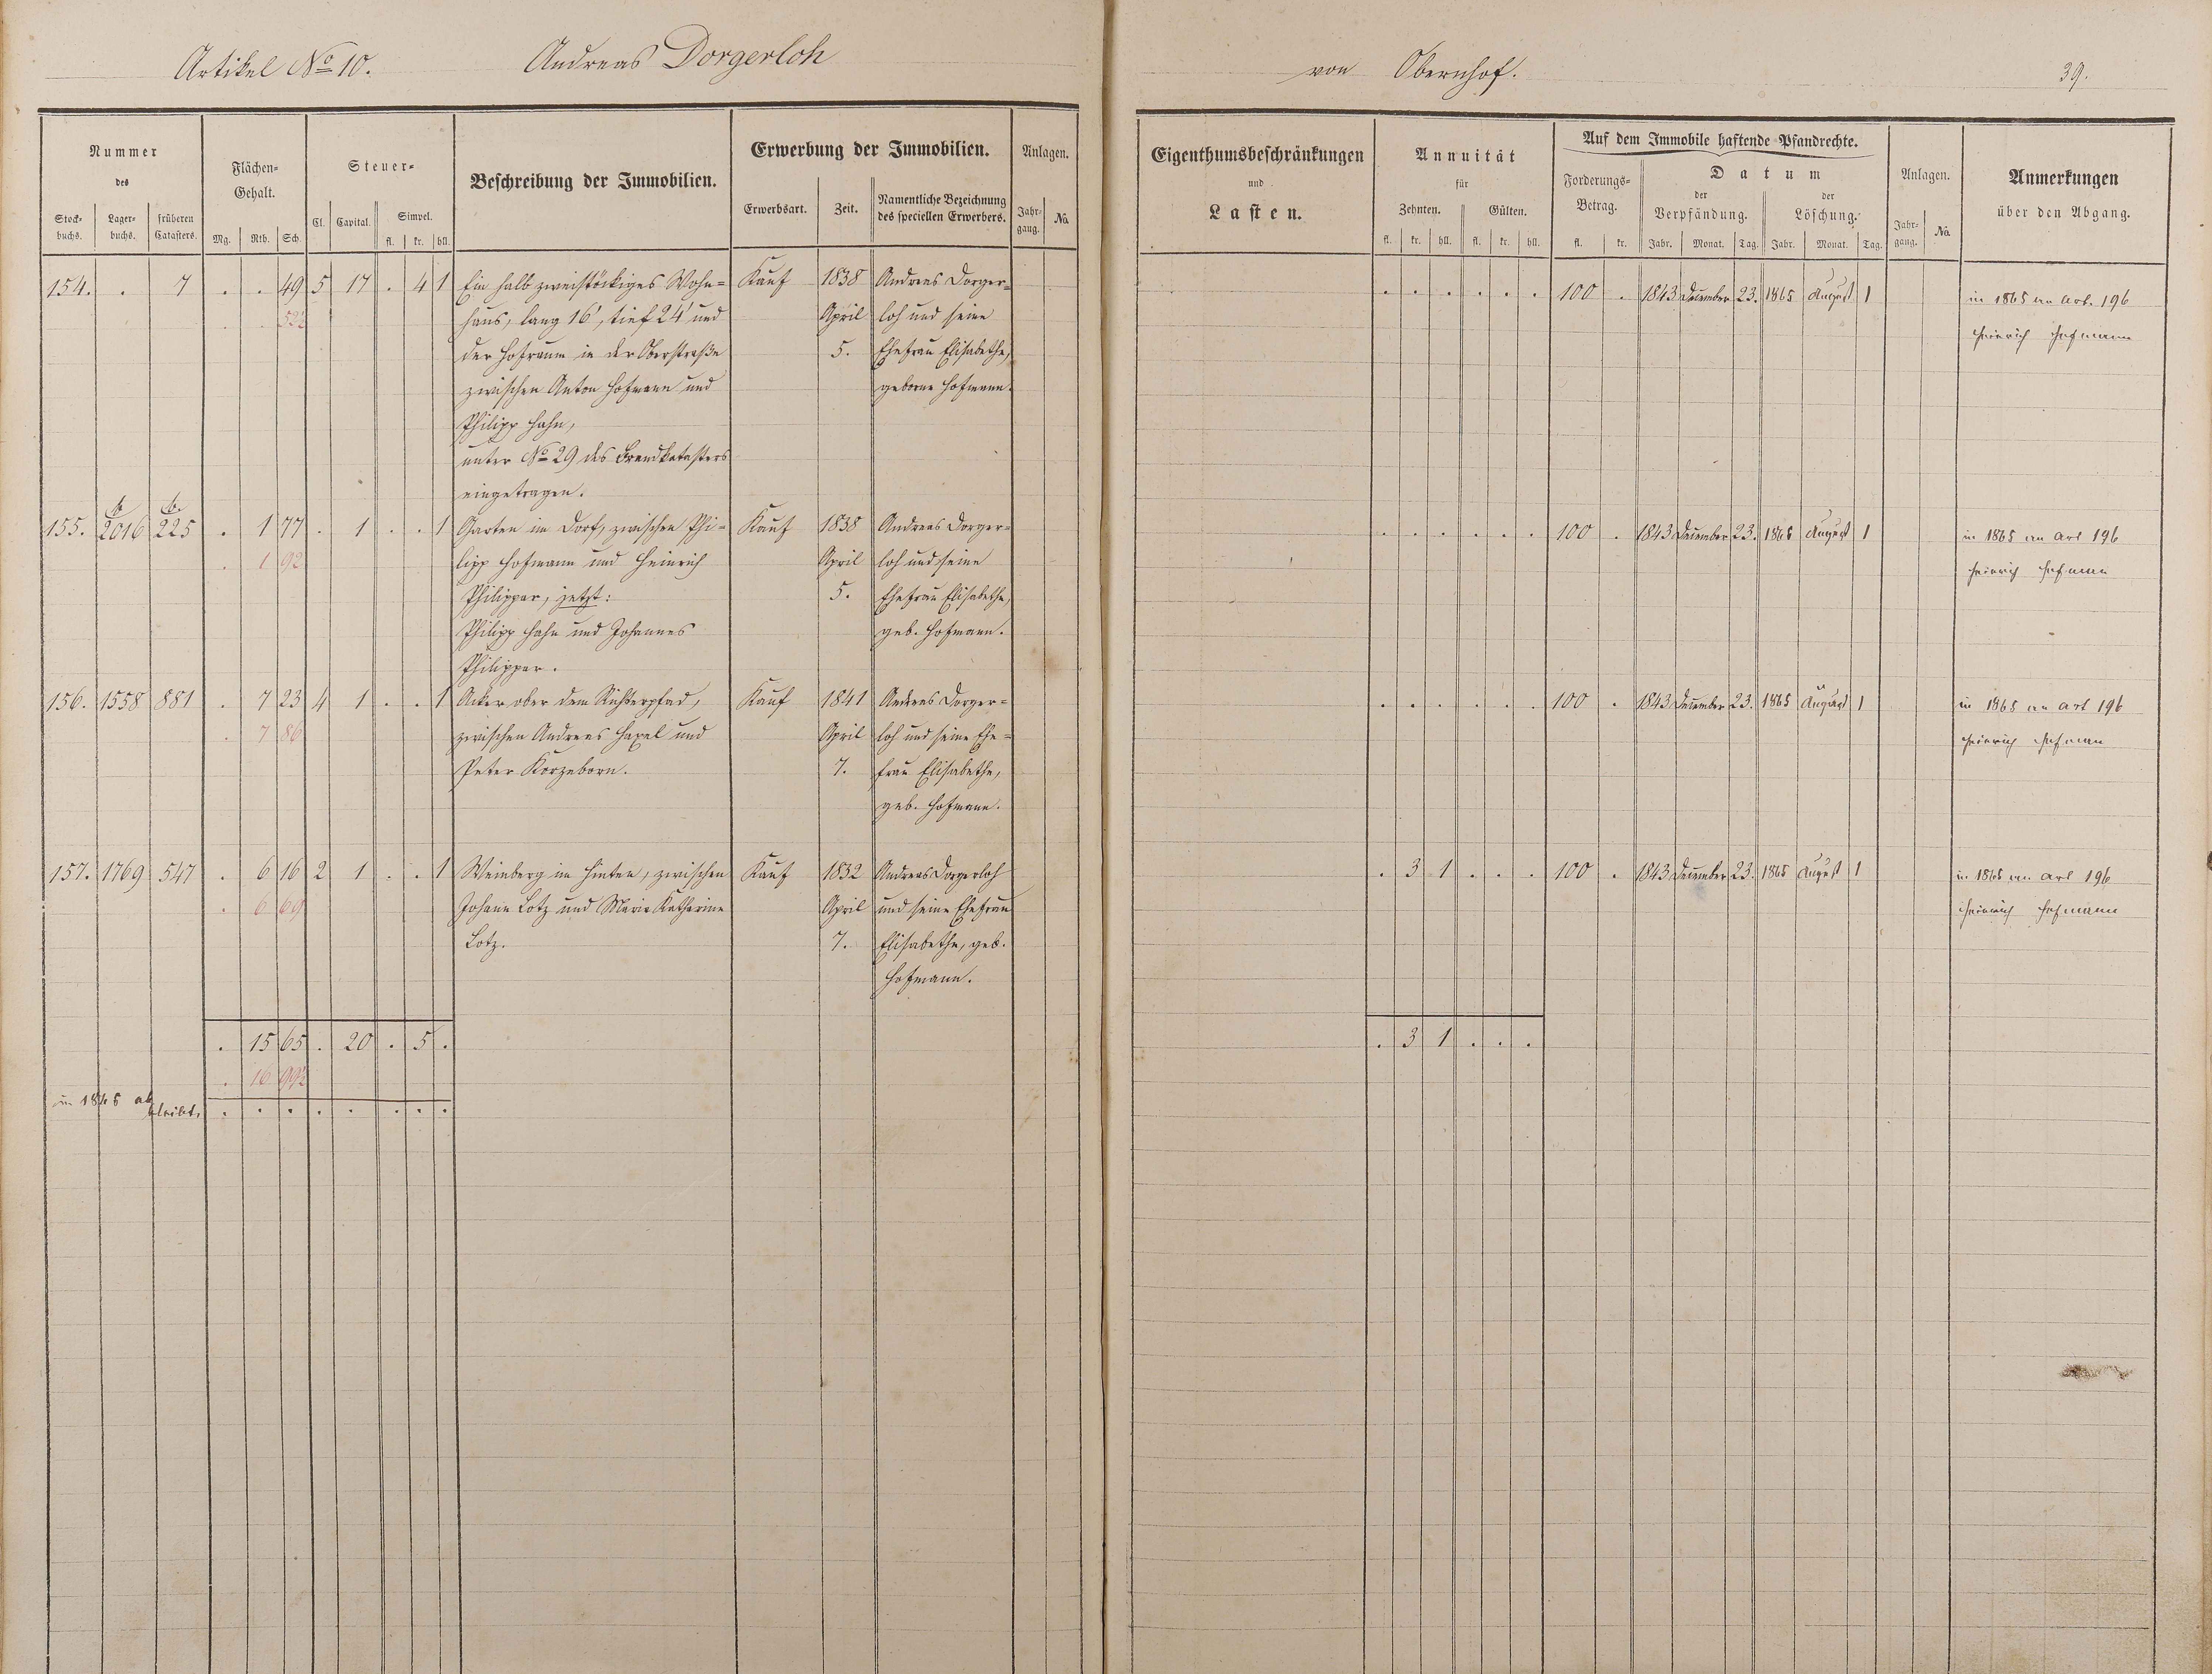 Artikel No 10. Andreas Dorgerloh
von Obernhof. 39.
Nummer des
Stock-buchs. Lager-buchs. früheren Catasters.
Flächen-Gehalt.
Mg. Rth. Sch.
Steuer-
Cl. Capital. Simpel.
fl. kr. hll.
Beschreibung der Immobilien.
Erwerbung der Immobilien.
Erwerbsart. Zeit. Namentliche Bezeichnung des speciellen Erwerbers.
Anlagen.
Jahr-gang. No.
Eigenthumsbeschränkungen
und
Lasten.
Annuität
für
Zehnten. Gülten.
fl. kr. hll. fl. kr. hll.
Auf dem Immobile haftende Pfandrechte.
Forderungs-Betrag.
fl. kr.
Datum
der Verpfändung. der Löschung.
Jahr. Monat. Tag. Jahr. Monat. Tag.
Anlagen.
Jahr-gang. No.
Anmerkungen
über den Abgang.
154. . 7 . . 49 5 17 . 4 1 Ein halb zweistöckiges Wohn= Kauf 1838 Andreas Dorger=
. . 52½ haus, lang 16', tief 24' und April loh und seine
der Hofraum in der Oberstraße 5. Ehefrau Elisabethe,
zwischen Anton Hofmann und geborne Hofmann.
Philipp Hahn,
unter No 29 des Brandkatasters
eingetragen.
. . . . . . 100 . 1843 December 23. 1865 August 1 in 1865 an Art. 196
Heinrich Hofmann
155. 2016 225 . 1 77 . 1 . . 1 Garten im Dorf, zwischen Phi= Kauf 1838 Andreas Dorger=
. 1 92 lipp Hofmann und Heinrich April loh und seine
Philippar, jetzt: 5. Ehefrau Elisabethe,
Philipp Hahn und Johannes geb. Hofmann.
Philippar.
. . . . . . 100 . 1843 December 23. 1865 August 1 in 1865 an Art 196
Heinrich Hofmann
156. 1558 881 . 7 23 4 1 . . 1 Acker ober dem Richterpfad, Kauf 1841 Andreas Dorger=
. 7 86 zwischen Andreas Hexel und April loh und seine Ehe=
Peter Korzeborn. 7. frau Elisabethe,
geb. Hofmann.
. . . . . . 100 . 1843 December 23. 1865 August 1 in 1865 an Art 196
Heinrich Hofmann
157. 1769 547 . 6 16 2 1 . . 1 Weinberg im Hinten, zwischen Kauf 1832 Andreas Dorgerloh
. 6 69 Johann Lotz und Marie Katharine April und seine Ehefrau
Lotz. 7. Elisabethe, geb.
Hofmann.
. 3 1 . . . 100 . 1843 December 23. 1865 August 1 in 1865 an Art 196
Heinrich Hofmann
. 15 65 . 20 . 5 .
. 16 99½
. 3 1 . . .
in 1865 ab
bleibt, . . . . . . . .